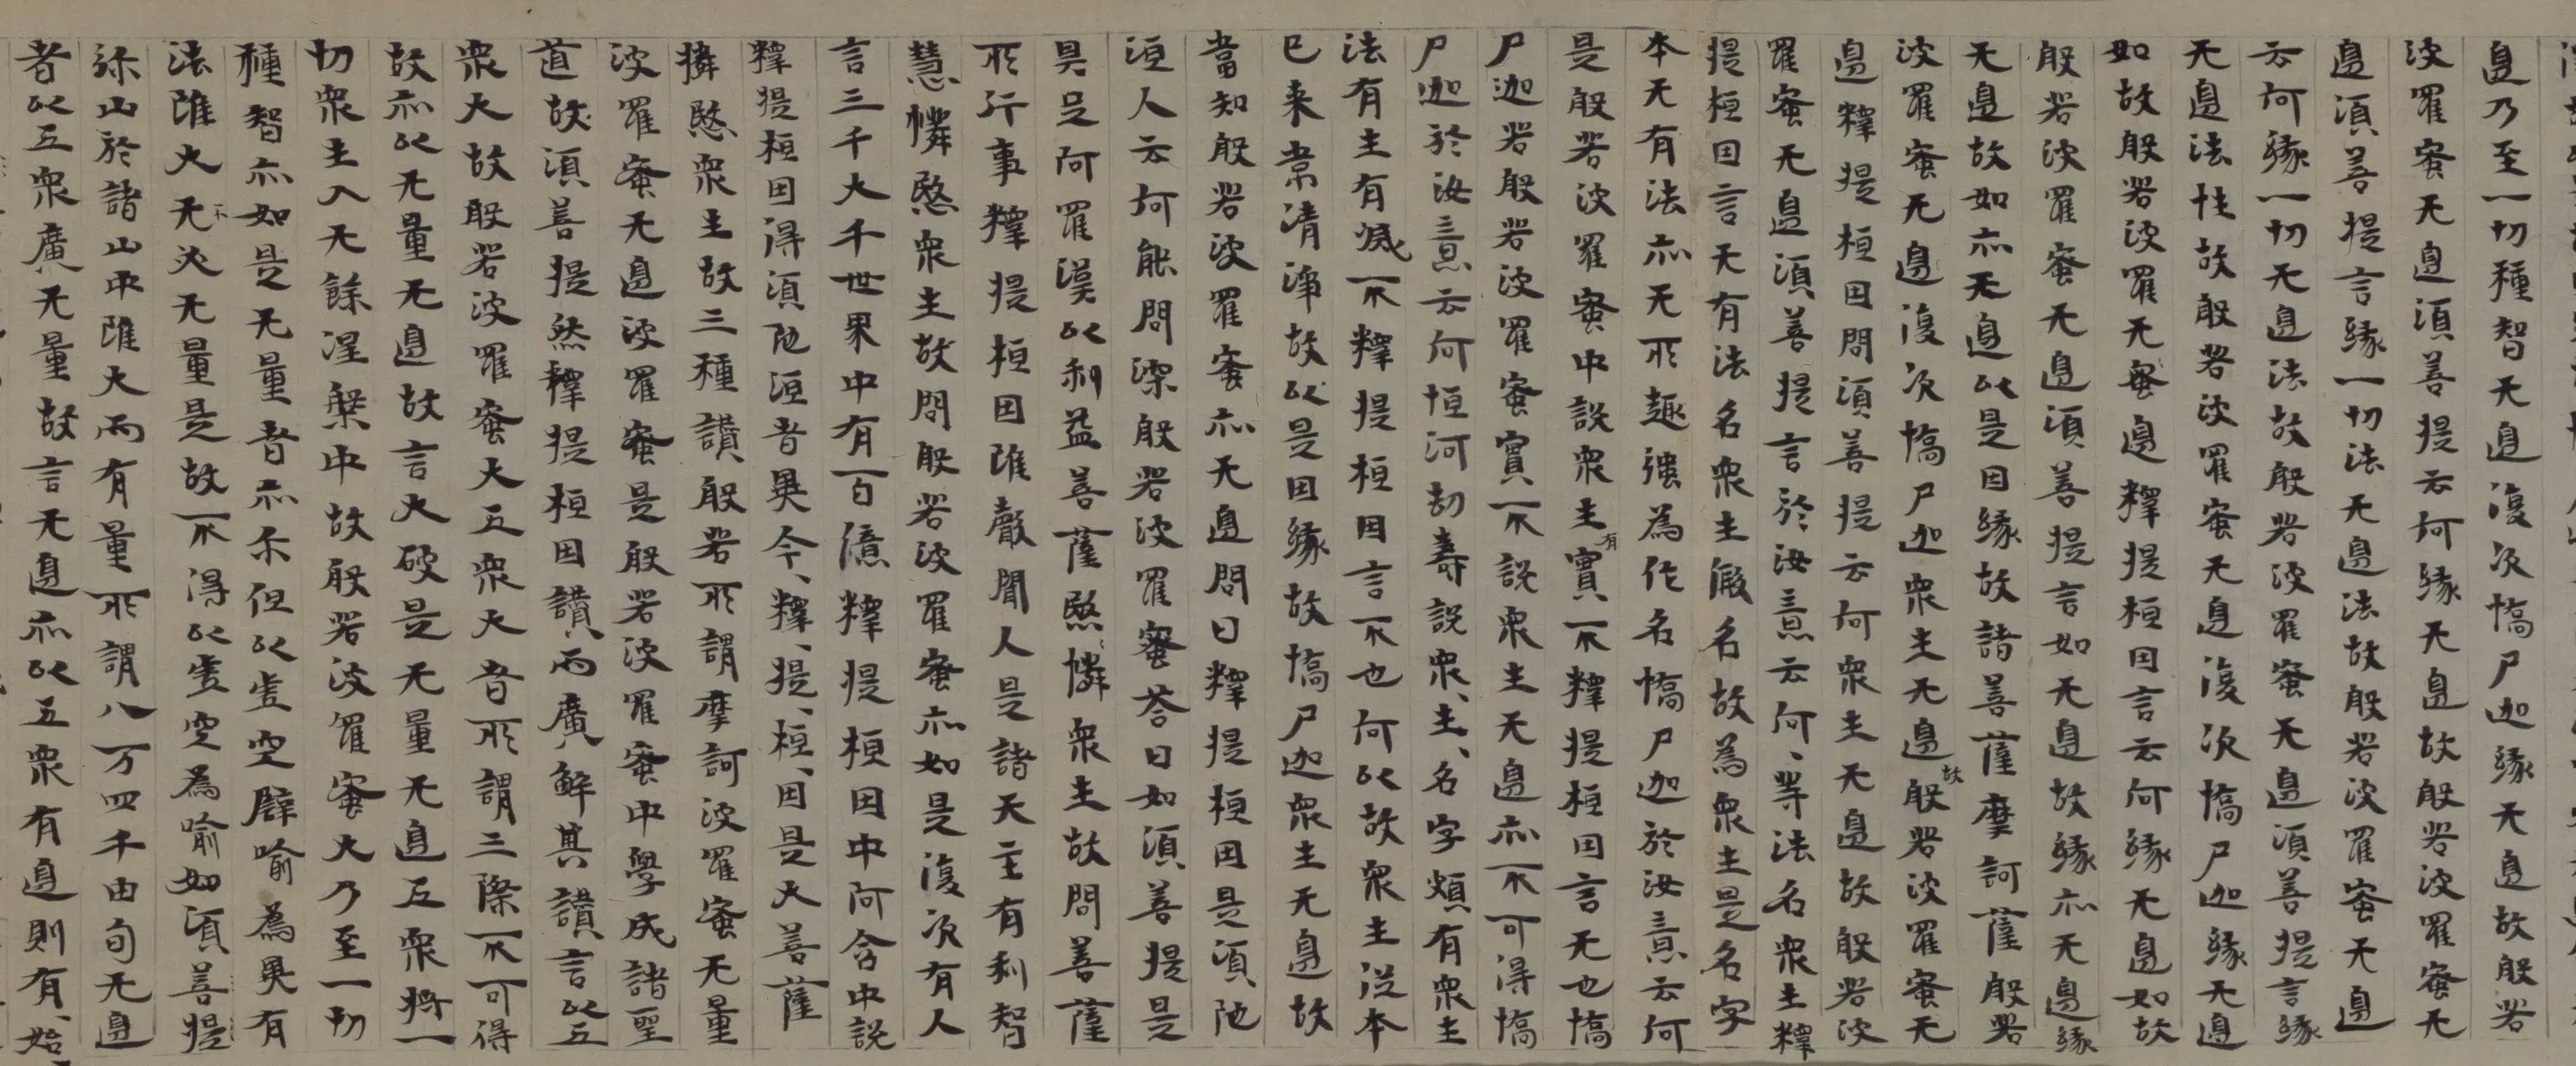 邊乃至一切種智无邊復次憍尸迦緣无邊故般若
波羅蜜无邊須菩提云何緣无邊故般若波羅蜜无
邊須菩提言緣一切法无邊法故般若波羅蜜无邊
云何緣一切无邊法故般若波羅蜜无邊須菩提言緣
无邊法性故般若波羅蜜无邊復次憍尸迦緣无邊
如故般若波羅无蜜邊釋提桓因言云何緣无邊如故
般若波羅蜜无邊須菩提言如无邊故緣亦无邊緣
无邊故如亦无邊以是因緣故諸菩薩摩訶薩般若
波羅蜜无邊復次憍尸迦衆生无邊故般若波羅蜜无
邊釋提桓因問須菩提云何衆生无邊故般若波
羅蜜无邊須菩提言於汝意云何、等法名衆生釋
提桓因言无有法名衆生假名故為衆生是名字
本无有法亦无所趣強為作名憍尸迦於汝意云何
是般若波羅蜜中說衆生有實不釋提桓因言无也憍
尸迦若般若波羅蜜實不說衆生无邊亦不可得憍
尸迦於汝意云何恒河劫壽說衆、生、名字頗有衆生
法有生有滅不釋提桓因言不也何以故衆生從本
已来常清淨故以是因緣故憍尸迦衆生无邊故
當知般若波羅蜜亦无邊問曰釋提桓因是須陁
洹人云何能問深般若波羅蜜荅曰如須菩提是
具足阿羅漢以利益菩薩愍憐衆生故問菩薩
所行事釋提桓因雖聲聞人是諸天主有利智
慧憐愍衆生故問般若波羅蜜亦如是復次有人
言三千大千世界中有百億釋提桓因中阿含中說
釋提桓因得須陁洹者異今、釋、提、桓、因是大菩薩
憐愍衆生故三種讚般若所謂摩訶波羅蜜无量
波羅蜜无邊波羅蜜是般若波羅蜜中學成諸聖
道故須菩提然釋提桓因讚而廣解其讚言以五
衆大故般若波羅蜜大五衆大者所謂三際不可得
故亦以无量无邊故言大破是无量无邊五衆將一
切衆生入无餘涅槃中故般若波羅蜜大乃至一切
種智亦如是无量者亦尒但以虛空譬喻為異有
法雖大无不必无量是故不得以虛空為喻如須菩提
弥山於諸山中雖大而有量所謂八万四千由旬无邊
者以五衆廣无量故言无邊亦以五衆有邊則有、始、